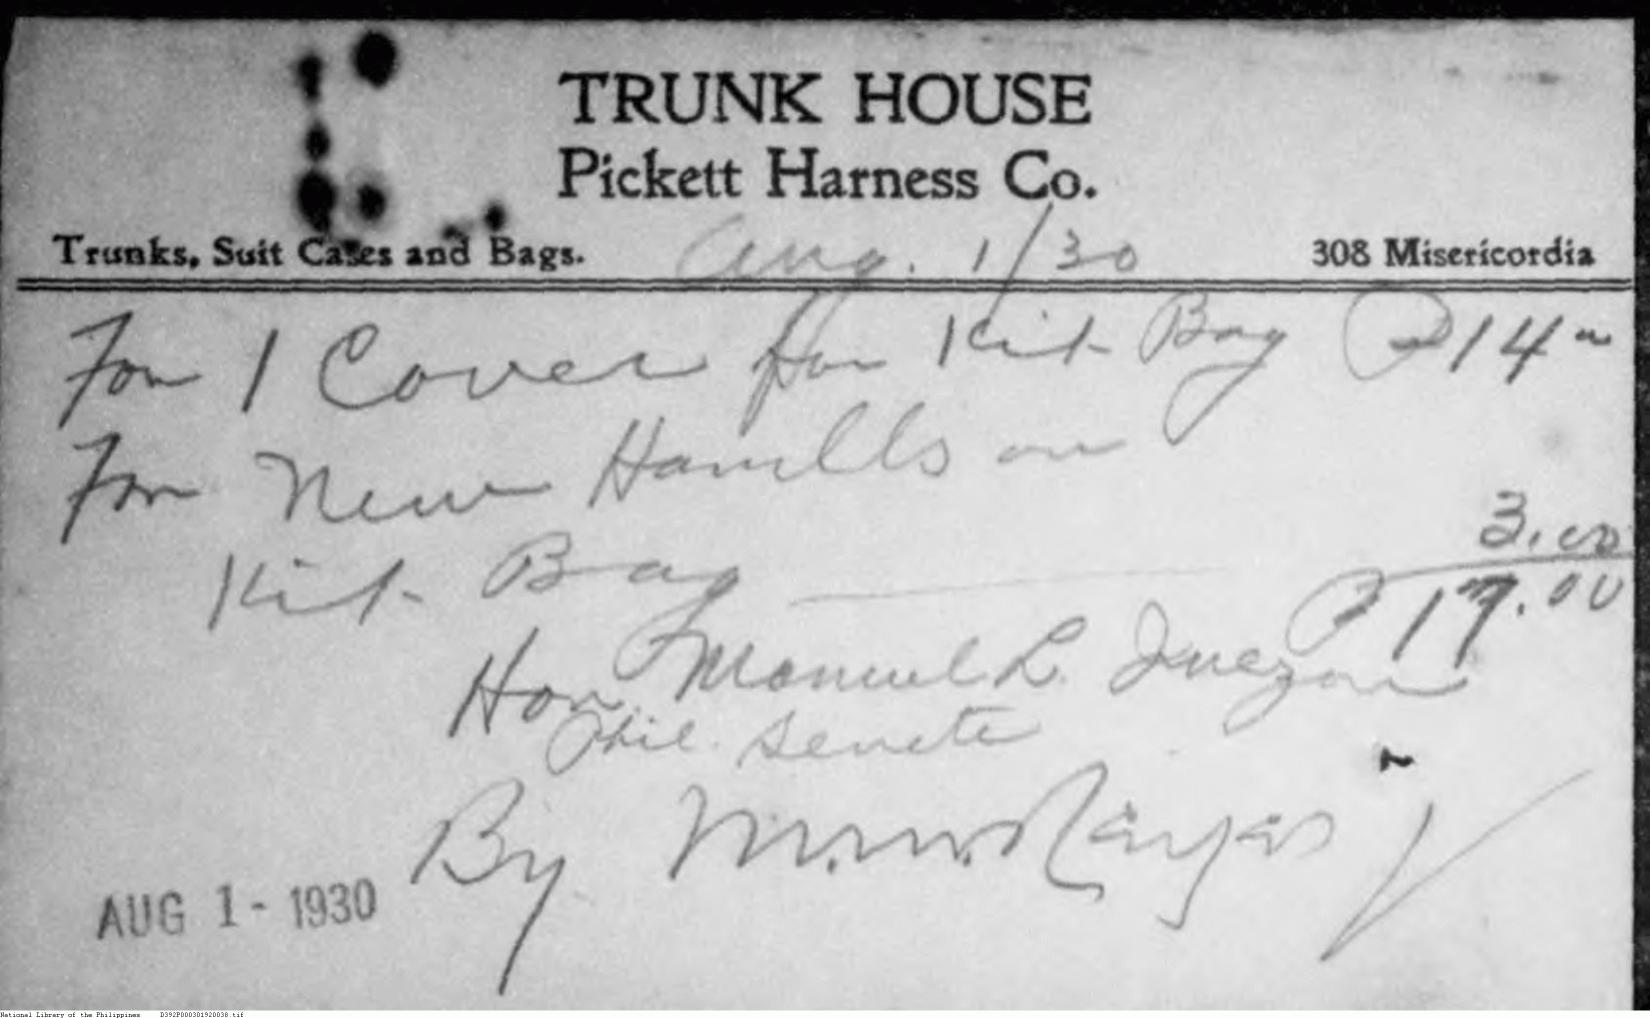 TRUNK HOUSE
Pickett Harness Co.
Trunks, Suit Cases and Bags. Aug. 1/30 308 Misericordia
For 1 Cover for Kit Bag ₱14
For New Handles on
Kit Bag 3.00
₱17.00
Hon. Manuel L. Quezon
Phil. Senate
By
AUG 1 - 1930
National Library of the Philippines D392P000301920038.tif